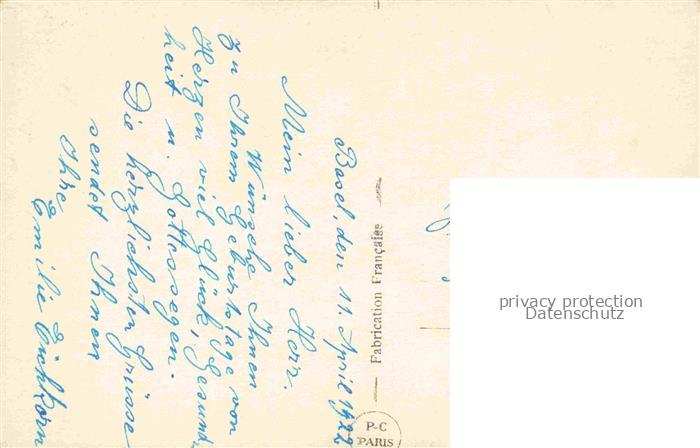 Basel, den 11. April 1922
Mein lieber Herr.
Wünsche Ihnen
zu Ihrem Geburtstage von
Herzen viel Glück, Gesund-
heit u. Gottessegen.
Die herzlichsten Grüsse
sendet Ihnen
Ihre
Emilie Eichkorn
Fabrication Française
P-C
PARIS
privacy protection
Datenschutz